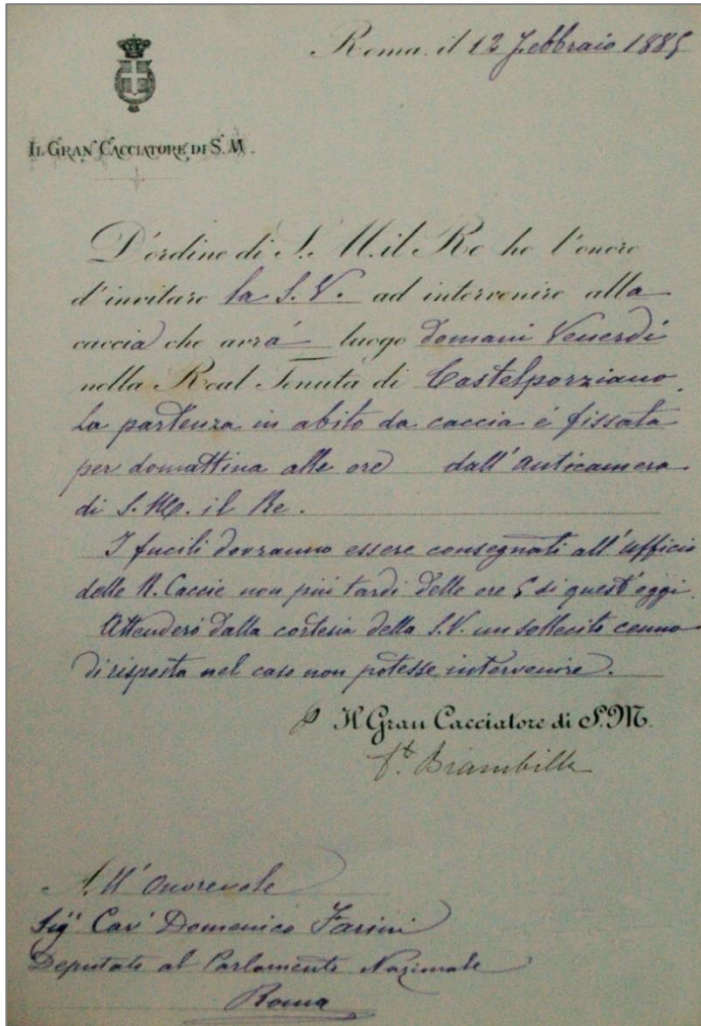 Roma. il 12 Febbraio 1885
IL GRAN CACCIATORE DI S. M.
D'ordine di S. M. il Re ho l'onore
d'invitare la S. V. ad intervenire alla
caccia che avrà luogo Domani Venerdi
nella Real Tenuta di Castelporziano.
La partenza in abito da caccia è fissata
per domattina alle ore dall'Anticamera
di S. M. il Re.
I fucili dovranno essere consegnati all'Ufficio
delle R. Caccie non più tardi delle ore 5 di quest'oggi.
Attenderò dalla cortesia della S. V. un sollecito cenno
di risposta nel caso non potesse intervenire.
p Il Gran Cacciatore di S. M.
Brambilla
All'Onorevole
Sigr Cavr Domenico Farini
Deputato al Parlamento Nazionale
Roma